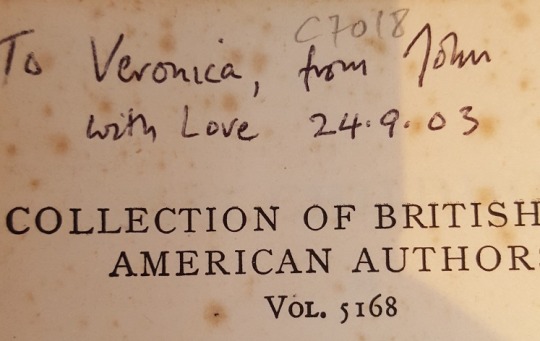 C7018
To Veronica, from John
with Love 24.9.03
COLLECTION OF BRITISH
AMERICAN AUTHORS
VOL. 5168